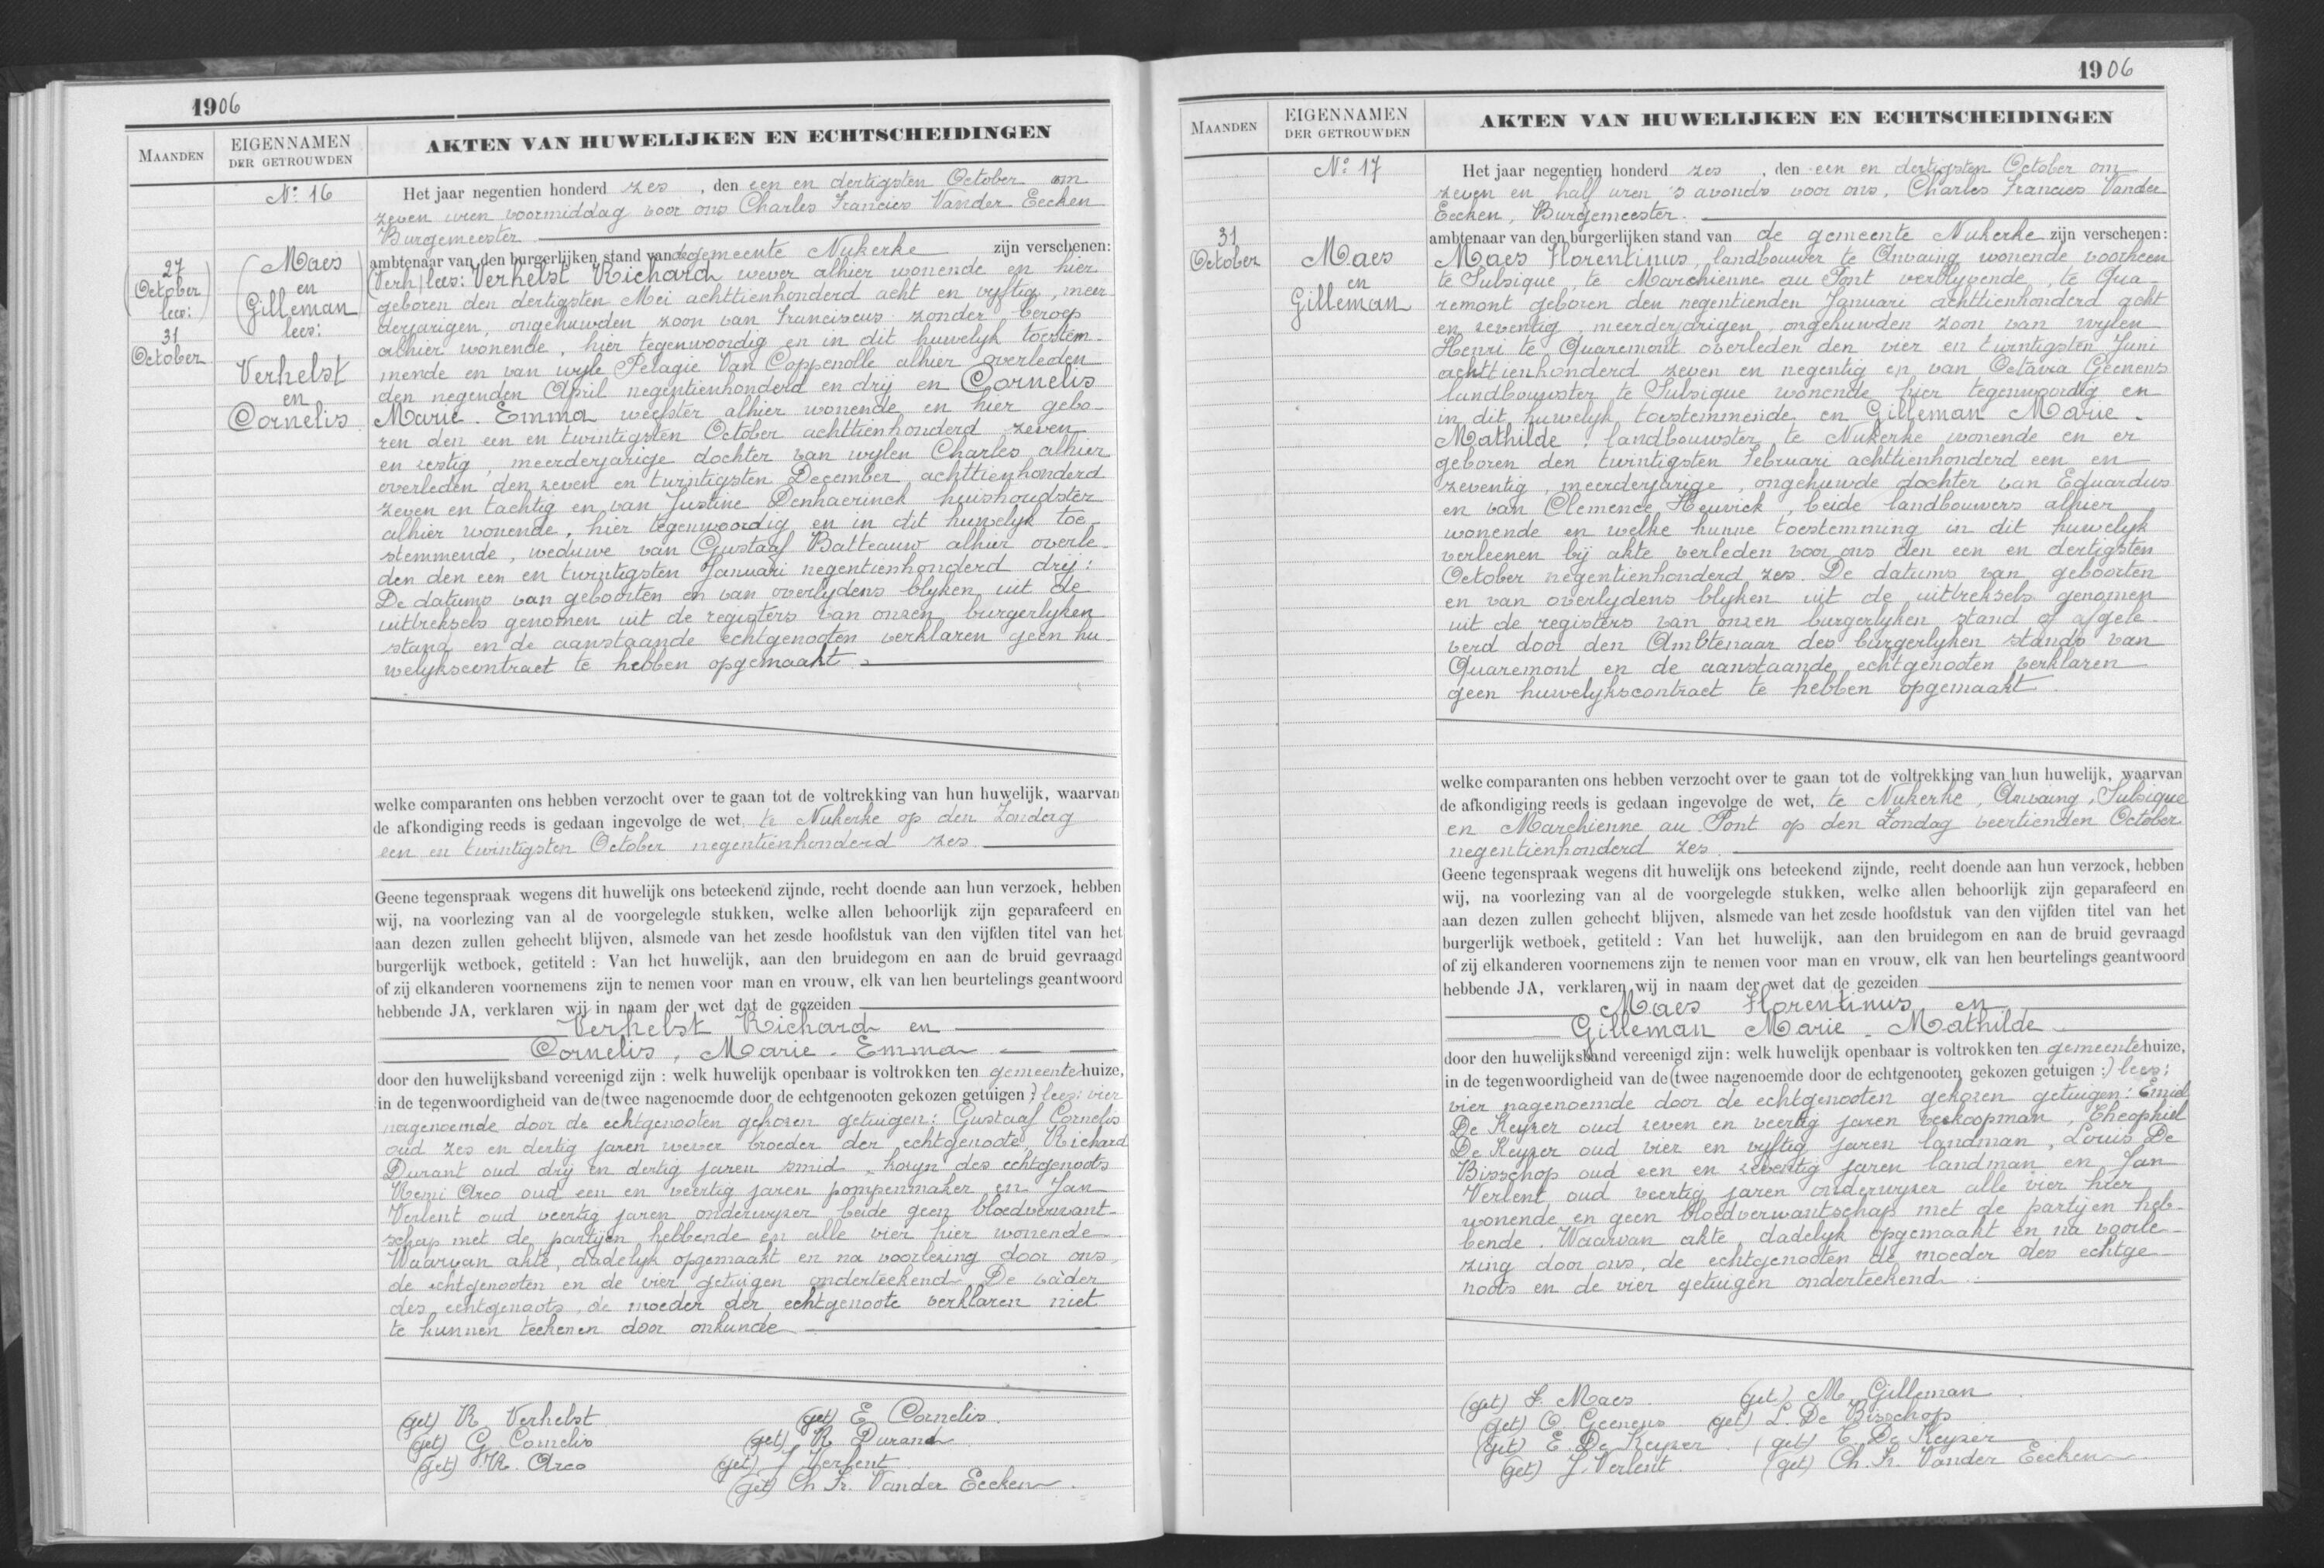 1906
MAANDEN
EIGENNAMEN
DER GETROUWDEN
AKTEN VAN HUWELIJKEN EN ECHTSCHEIDINGEN
No 16
(27
October
lees:)
31
October
(Maes
en
Gilleman
lees:
Verhelst
en
Cornelis
Het jaar negentien honderd zes, den een en dertigsten October om
zeven uren voormiddag voor ons Charles Francies Vander Eecken
Burgemeester
ambtenaar van den burgerlijken stand van de gemeente Nukerke zijn verschenen:
(Verh) lees: Verhelst Richard wever alhier wonende en hier
geboren den dertigsten Mei achttienhonderd acht en vyftig, meer-
derjarigen, ongehuwden zoon van Franciscus zonder beroep
alhier wonende, hier tegenwoordig en in dit huwelyk toestem-
mende en van wyle Pelagie Van Coppenolle alhier overleden
den negenden April negentienhonderd en drij en Cornelis
Marie-Emma weefster alhier wonende en hier gebo-
ren den een en twintigsten October achttienhonderd zeven
en zestig, meerderjarige dochter van wylen Charles alhier
overleden den zeven en twintigsten December achttienhonderd
zeven en tachtig en van Justine Denhaerinck huishoudster
alhier wonende, hier tegenwoordig en in dit huwelyk toe-
stemmende, weduwe van Gustaaf Batteauw alhier overle-
den den een en twintigsten Januari negentienhonderd drij:
De datums van geboorten en van overlydens blyken uit de
uittreksels genomen uit de registers van onzen burgerlyken
stand en de aanstaande echtgenooten verklaren geen hu-
welykscontract te hebben opgemaakt.
welke comparanten ons hebben verzocht over te gaan tot de voltrekking van hun huwelijk, waarvan
de afkondiging reeds is gedaan ingevolge de wet, te Nukerke op den Zondag
een en twintigsten October negentienhonderd zes.
Geene tegenspraak wegens dit huwelijk ons beteekend zijnde, recht doende aan hun verzoek, hebben
wij, na voorlezing van al de voorgelegde stukken, welke allen behoorlijk zijn geparafeerd en
aan dezen zullen gehecht blijven, alsmede van het zesde hoofdstuk van den vijfden titel van het
burgerlijk wetboek, getiteld : Van het huwelijk, aan den bruidegom en aan de bruid gevraagd
of zij elkanderen voornemens zijn te nemen voor man en vrouw, elk van hen beurtelings geantwoord
hebbende JA, verklaren wij in naam der wet dat de gezeiden
Verhelst Richard en
Cornelis, Marie-Emma
door den huwelijksband vereenigd zijn : welk huwelijk openbaar is voltrokken ten gemeentehuize,
in de tegenwoordigheid van de (twee nagenoemde door de echtgenooten gekozen getuigen :) lees: vier
nagenoemde door de echtgenooten gekozen getuigen: Gustaaf Cornelis
oud zes en dertig jaren wever broeder der echtgenoote, Richard
Durant oud drij en dertig jaren smid, kozyn des echtgenoots
Remi Arco oud een en veertig jaren pompenmaker en Jan
Verlent oud veertig jaren onderwyzer beide geen bloedverwant-
schap met de partijen hebbende en alle vier hier wonende
Waarvan akte, dadelyk opgemaakt en na voorlezing door ons,
de echtgenooten en de vier getuigen onderteekend. De vader
des echtgenoots, de moeder der echtgenoote verklaren niet
te kunnen teekenen door onkunde
(get) R Verhelst (get) E Cornelis.
(get) G. Cornelis (get) R Durand
(get) R. Arco (get) J Verlent
(get) Ch Fr. Vander Eecken.
1906
MAANDEN
EIGENNAMEN
DER GETROUWDEN
AKTEN VAN HUWELIJKEN EN ECHTSCHEIDINGEN
No 17
31
October
Maes
en
Gilleman
Het jaar negentien honderd zes, den een en dertigsten October om
zeven en half uren 's avonds voor ons, Charles Francies Vander
Eecken, Burgemeester.
ambtenaar van den burgerlijken stand van de gemeente Nukerke zijn verschenen:
Maes Florentinus, landbouwer te Anvaing wonende voorheen
te Sulsique, te Marchienne au Pont verblyvende, te Qua-
remont geboren den negentienden Januari achttienhonderd acht
en zeventig, meerderjarigen, ongehuwden zoon van wylen
Henri te Quaremont overleden den vier en twintigsten Juni
achttienhonderd zeven en negentig en van Octavia Geenens
landbouwster te Sulsique wonende hier tegenwoordig en
in dit huwelyk toestemmende en Gilleman Marie-
Mathilde, landbouwster te Nukerke wonende en er
geboren den twintigsten Februari achttienhonderd een en
zeventig, meerderjarige, ongehuwde dochter van Eduardus
en van Clemence Heuvick, beide landbouwers alhier
wonende en welke hunne toestemming in dit huwelyk
verleenen bij akte verleden voor ons den een en dertigsten
October negentienhonderd zes. De datums van geboorten
en van overlydens blyken uit de uittreksels genomen
uit de registers van onzen burgerlyken stand of afgele-
verd door den Ambtenaar des burgerlyken stands van
Quaremont en de aanstaande echtgenooten verklaren
geen huwelykscontract te hebben opgemaakt.
welke comparanten ons hebben verzocht over te gaan tot de voltrekking van hun huwelijk, waarvan
de afkondiging reeds is gedaan ingevolge de wet, te Nukerke, Anvaing, Sulsique
en Marchienne au Pont op den Zondag veertienden October
negentienhonderd zes.
Geene tegenspraak wegens dit huwelijk ons beteekend zijnde, recht doende aan hun verzoek, hebben
wij, na voorlezing van al de voorgelegde stukken, welke allen behoorlijk zijn geparafeerd en
aan dezen zullen gehecht blijven, alsmede van het zesde hoofdstuk van den vijfden titel van het
burgerlijk wetboek, getiteld : Van het huwelijk, aan den bruidegom en aan de bruid gevraagd
of zij elkanderen voornemens zijn te nemen voor man en vrouw, elk van hen beurtelings geantwoord
hebbende JA, verklaren wij in naam der wet dat de gezeiden
Maes Florentinus en
Gilleman Marie-Mathilde
door den huwelijksband vereenigd zijn : welk huwelijk openbaar is voltrokken ten gemeentehuize,
in de tegenwoordigheid van de (twee nagenoemde door de echtgenooten gekozen getuigen :) lees:
vier nagenoemde door de echtgenooten gekozen getuigen: Emiel
De Keyzer oud zeven en veertig jaren veekoopman, Theophiel
De Keyzer oud vier en vyftig jaren landman, Louis De
Bisschop oud een en zeventig jaren landman en Jan
Verlent oud veertig jaren onderwyzer alle vier hier
wonende en geen bloedverwantschap met de partyen heb-
bende. Waarvan akte, dadelyk opgemaakt en na voorle-
zing door ons, de echtgenooten de moeder des echtge-
noots en de vier getuigen onderteekend.
(get) F. Maes (get) M. Gilleman
(get) O. Geenens (get) L. De Bisschop
(get) E. De Keyzer (get) T. De Keyzer
(get) J. Verlent (get) Ch. Fr. Vander Eecken